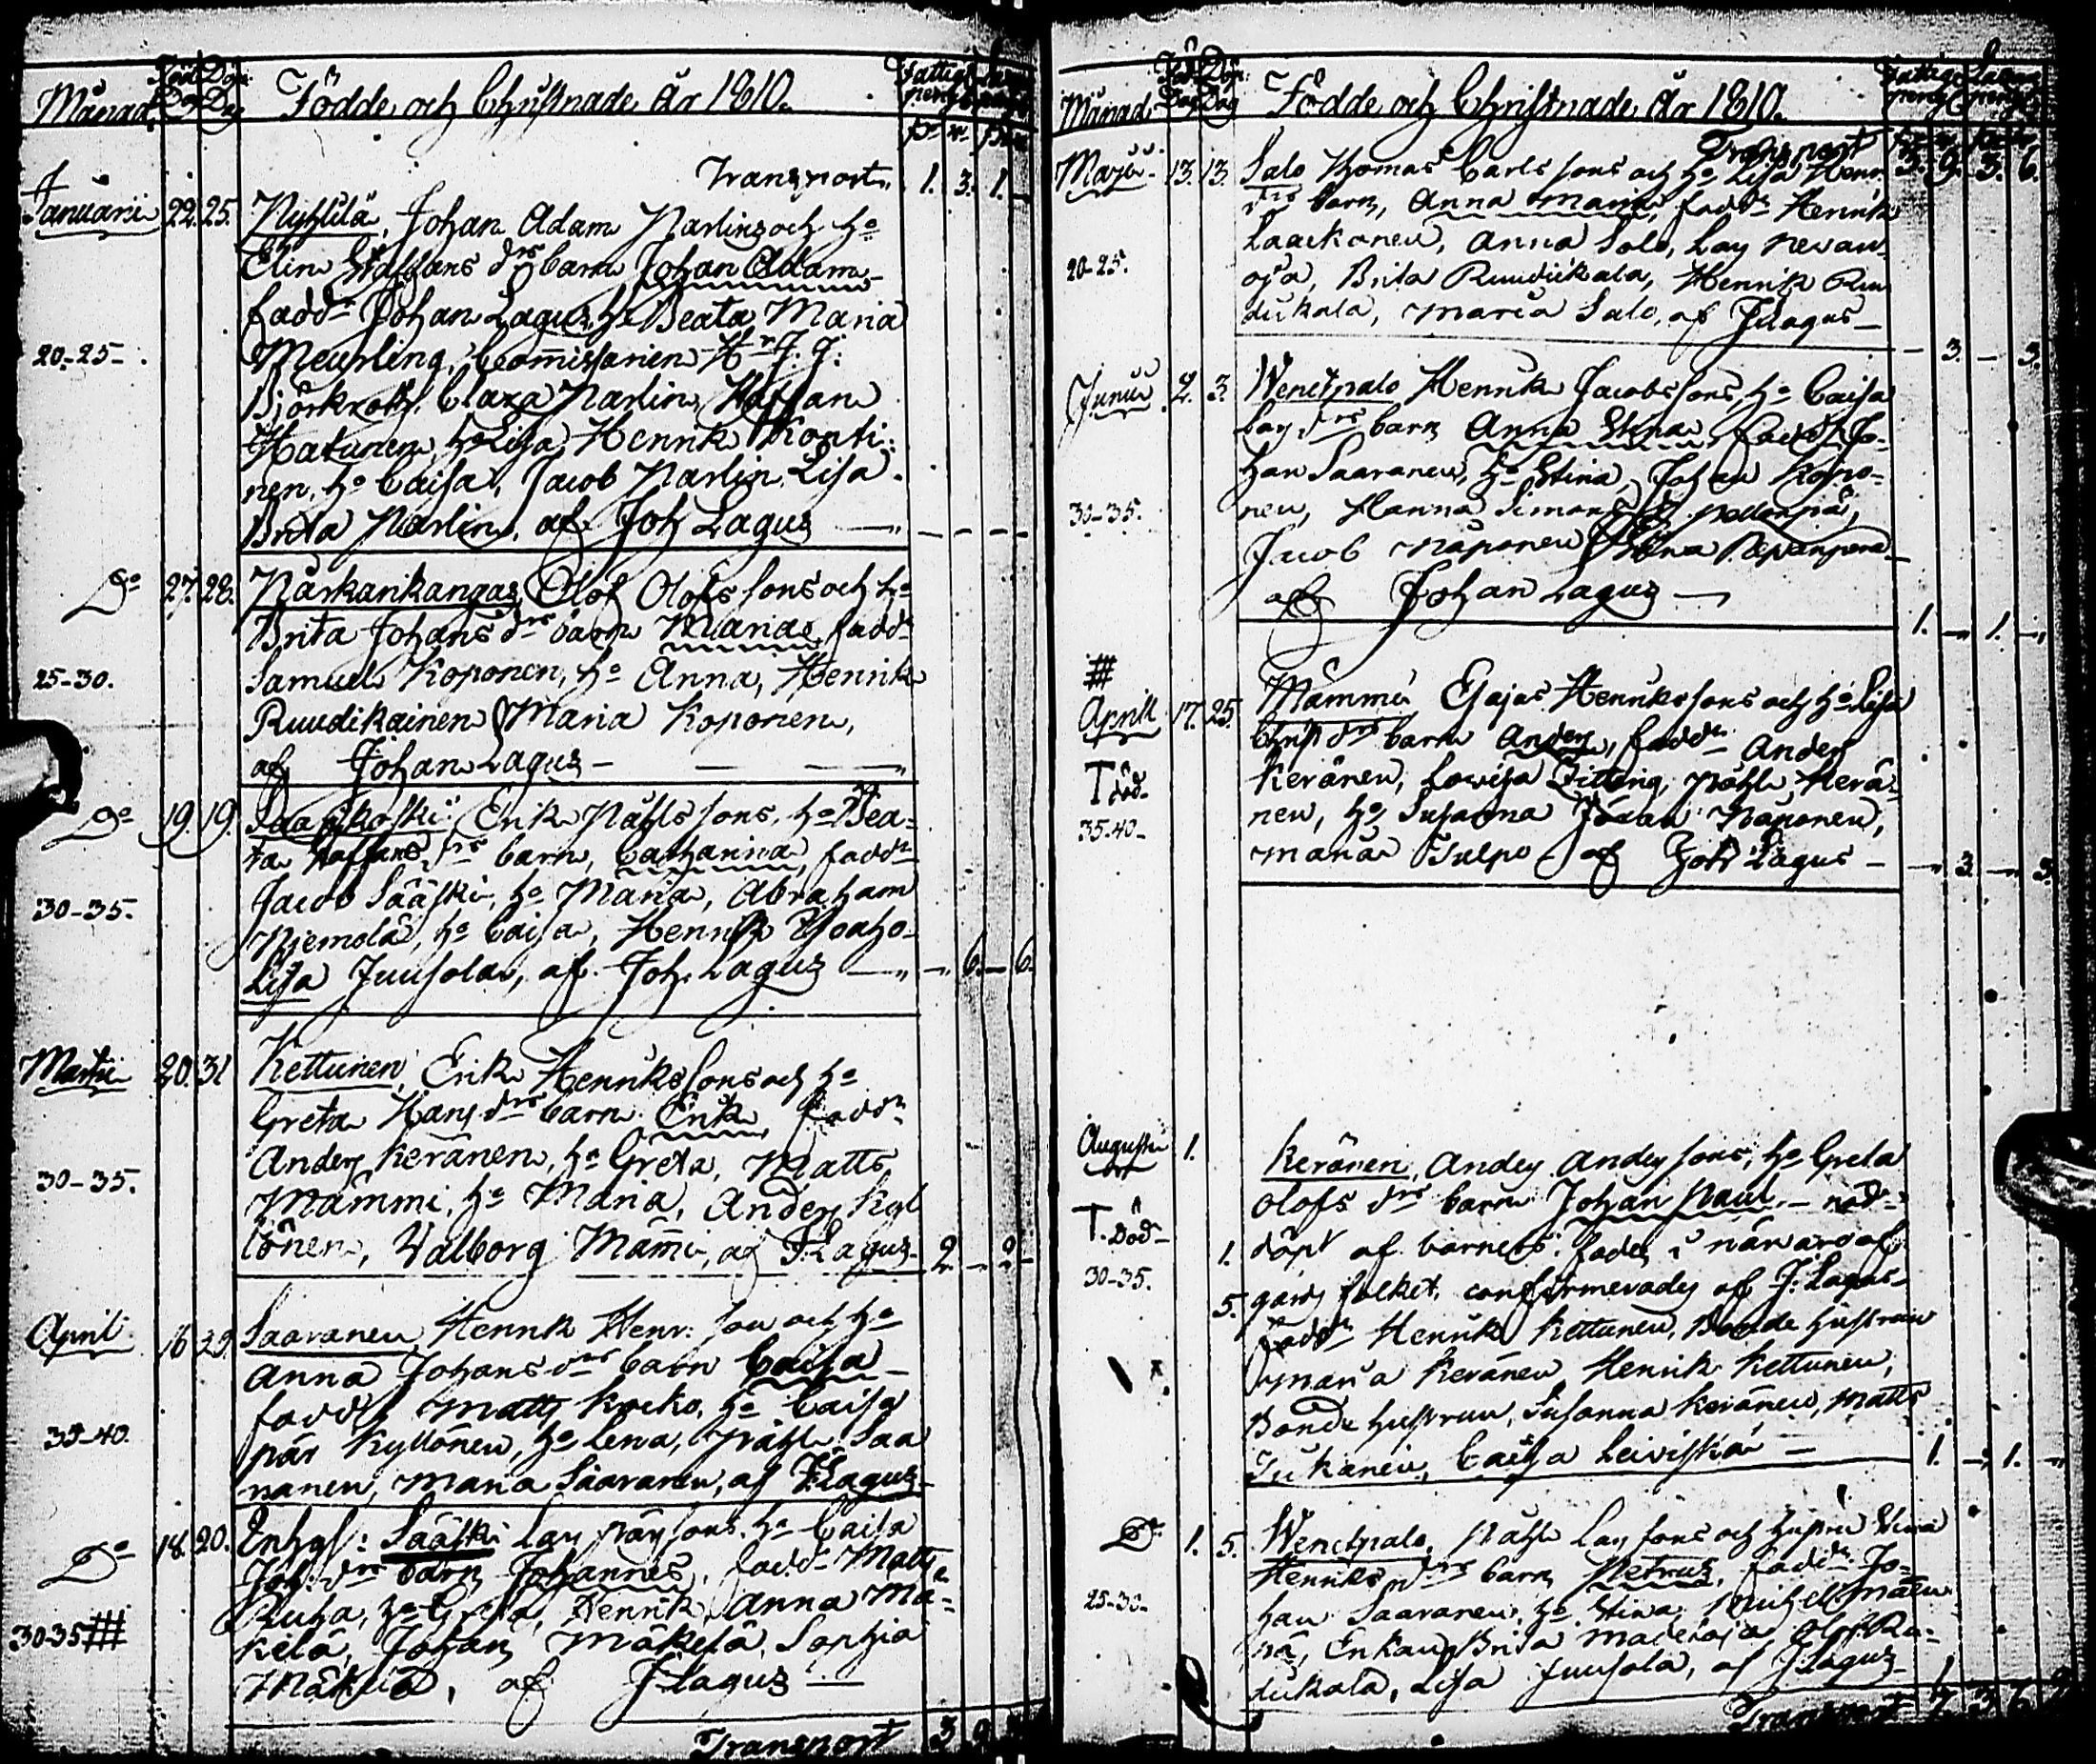 Månad Född Dag Döpt Dag Födde och Christnade År 1810. Fattig peng
Transport. 1. 3. 1.
Januarii 22. 25. Nyhsilä, Johan Adam Narlins och h:o
Elin Staffans d:rs barn Johan Adam
fadd:r Johan Lagus, h:o Beata Maria
20-25- Meurling, Commissarien H:r J. J:
Björkroth, Clara Narlin, Staffan
Hakunen, h:o Lisa, Henrik Konti-
nen, h:o Caisa, Jacob Narlin, Lisa
Brita Narlin, af Joh Lagus
D:o 27. 28. Närkankangas, Olof Olofs sons och h:o
Brita Johans d:rs barn Maria, fadd:r
25-30. Samuel Koponen, h:o Anna, Henrik
Ruudikainen, Maria Koponen,
af Johan Lagus
D:o 19. 19. Erik Påhls sons, h:o Bea-
ta Staffans d:rs barn, Catharina, fadd:r
30-35. Jacob Sääski, h:o Maria, Abraham
Njemolä, h:o Caisa, Henrik Ahoaho
Lisa Juusola, af Joh. Lagus 6. 6.
Martii 20. 31 Kettunen, Erik Henriks sons och h:o
Greta Hans d:rs barn Erik, fadd:r
30-35. Anders Keränen, h:o Greta, Matts
Mämmi, h:o Maria, Anders Kyl
lönen, Valborg Mämi, af J. Lagus 2. 2
April 16 25. Saaranen, Henrik Henr. son och h:o
Anna Johans d:rs barn Caisa
fadd:r Matts Kocko, h:o Caisa
35-40. pär Kyllönen, h:o Lena, påhl Saa
ranen, Maria Saaranen, af J. Lagus
D:o 18. 20. Inhys: Sääski Lars pärs sons, h:o Caisa
Joh. d:rs barn Johannes, fadd:r Matts
Ruha, h:o Greta, Henrik, Anna Mä-
30-35 # kelä, Johan Mäkelä, Sophia
Mäkelä, af J Lagus
Transport 3 9
Månad Född Dag Döpt Dag Födde och Christnade År 1810. Fattig peng
Transport 3. 9. 3. 6.
Maji 13. 13. Salo Thomas Carls sons och h:o Lisa Henr.
d:rs barn, Anna Maria, fadd:r Henrik
Laackonen, Anna Salo, Lars Nevan
20-25. oja, Brita Ruudikala, Henrik Ruu
dikala, Maria Salo, af J Lagus
3. 3.
Junii 2. 3. Wenetpalo Henrik Jacobs sons, h:o Caisa
Lars d:rs barn Anna Stina, fadd:r Jo-
han Saaranen, h:o Stina, Johan Kopo-
30-35. nen, Hanna Simons d:r
Jacob Näponen, Nevanpera
af Johan Lagus
1. 1.
# April 17. 25. Mämmi, Esajas Henriks sons och h:o Lisa
Chrs d:rs barn Anders, fadd:r Anders
T död. Keränen, Lovisa Zitting, påhl Kerä-
35-40- nen, h:o Susanna, Johan Näponen,
Maria Tulpo, af Joh Lagus 3. 3.
Augusti 1. Keränen, Anders Anders sons, h:o Greta
Olofs d:rs barn Johan Paul, nöd-
T. Död 1. döpt af barnets fader, i närvaro af
30-35. 5. gårds folket, confirmerades af J. Lagus
fadd:r Henrik Kettunen, Bonde hustrun
Maria Keränen, Henrik Kettunen,
Bonde hustrun, Susanna Keränen, Matts
Jukanen, Caisa Leiviskä 1. 1.
D:o 1. 5. Wenetpalo, påhl Lars sons och hustru Stina
Henriks d:rs barn Petrus, fadd:r Jo-
25-30- han Saaranen, h:o Stina, Michel Mäen
pä, Erkan Brita Madetoja, Olof Ru-
dikala, Lisa Juusola, af J Lagus
Transport 7. 3. 6